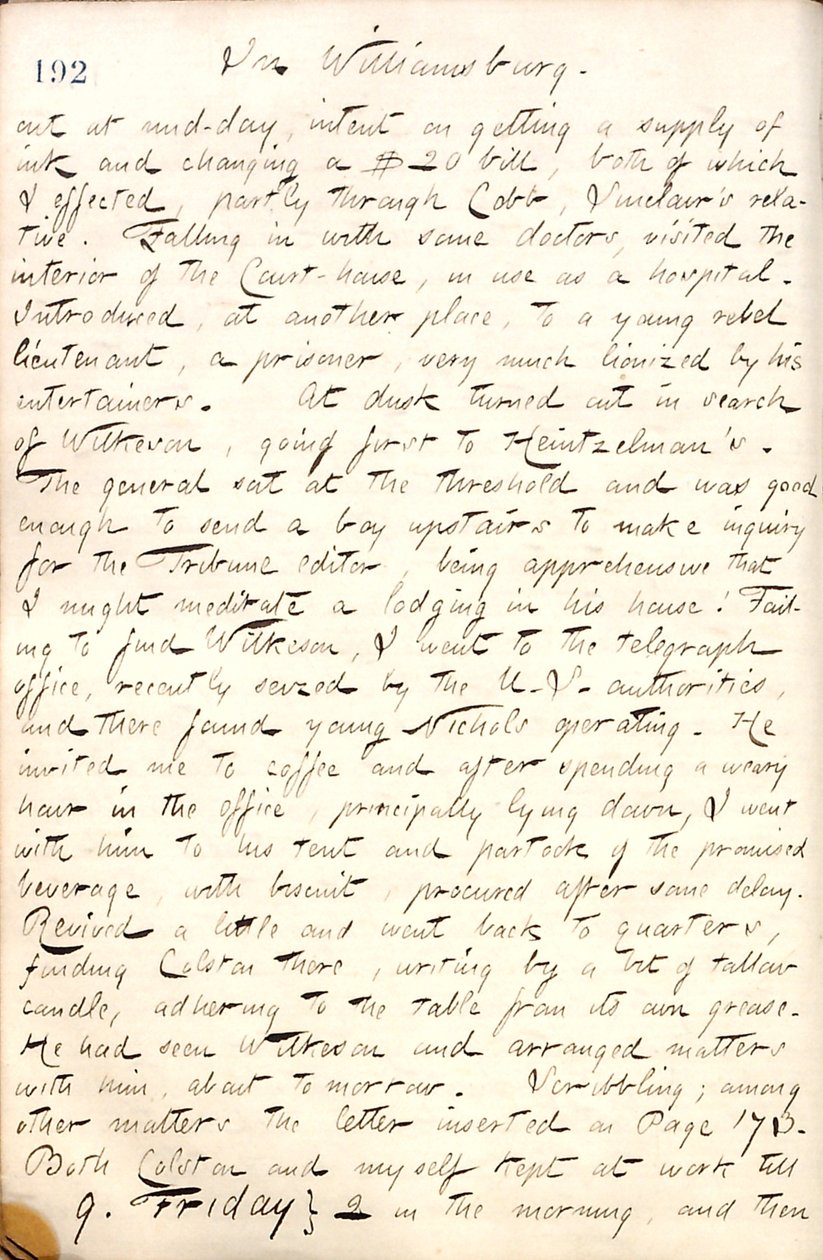 192
In Williamsburg.
out at mid-day, intent on getting a supply of
ink and changing a $20 bill, both of which
I effected, partly through Cobb, Sinclair's rela-
tive. Falling in with some doctors, visited the
interior of the Court-house, in use as a hospital.
Introduced, at another place, to a young rebel
lieutenant, a prisoner, very much lionized by his
entertainers. At dusk turned out in search
of Wilkeson, going first to Heintzelman's.
The general sat at the threshold and was good
enough to send a boy upstairs to make inquiry
for the Tribune editor, being apprehensive that
I might meditate a lodging in his house! Fail-
ing to find Wilkeson, I went to the telegraph
office, recently seized by the U.S. authorities,
and there found young Nichols operating. He
invited me to coffee and after spending a weary
hour in the office, principally lying down, I went
with him to his tent and partook of the promised
beverage, with biscuit, procured after some delay.
Revived a little and went back to quarters,
finding Colston there, writing by a bit of tallow
candle, adhering to the table from its own grease.
He had seen Wilkeson and arranged matters
with him, about to morrow. Scribbling; among
other matters the letter inserted on Page 173.
Both Colston and myself kept at work till
9. Friday} 2 in the morning, and then